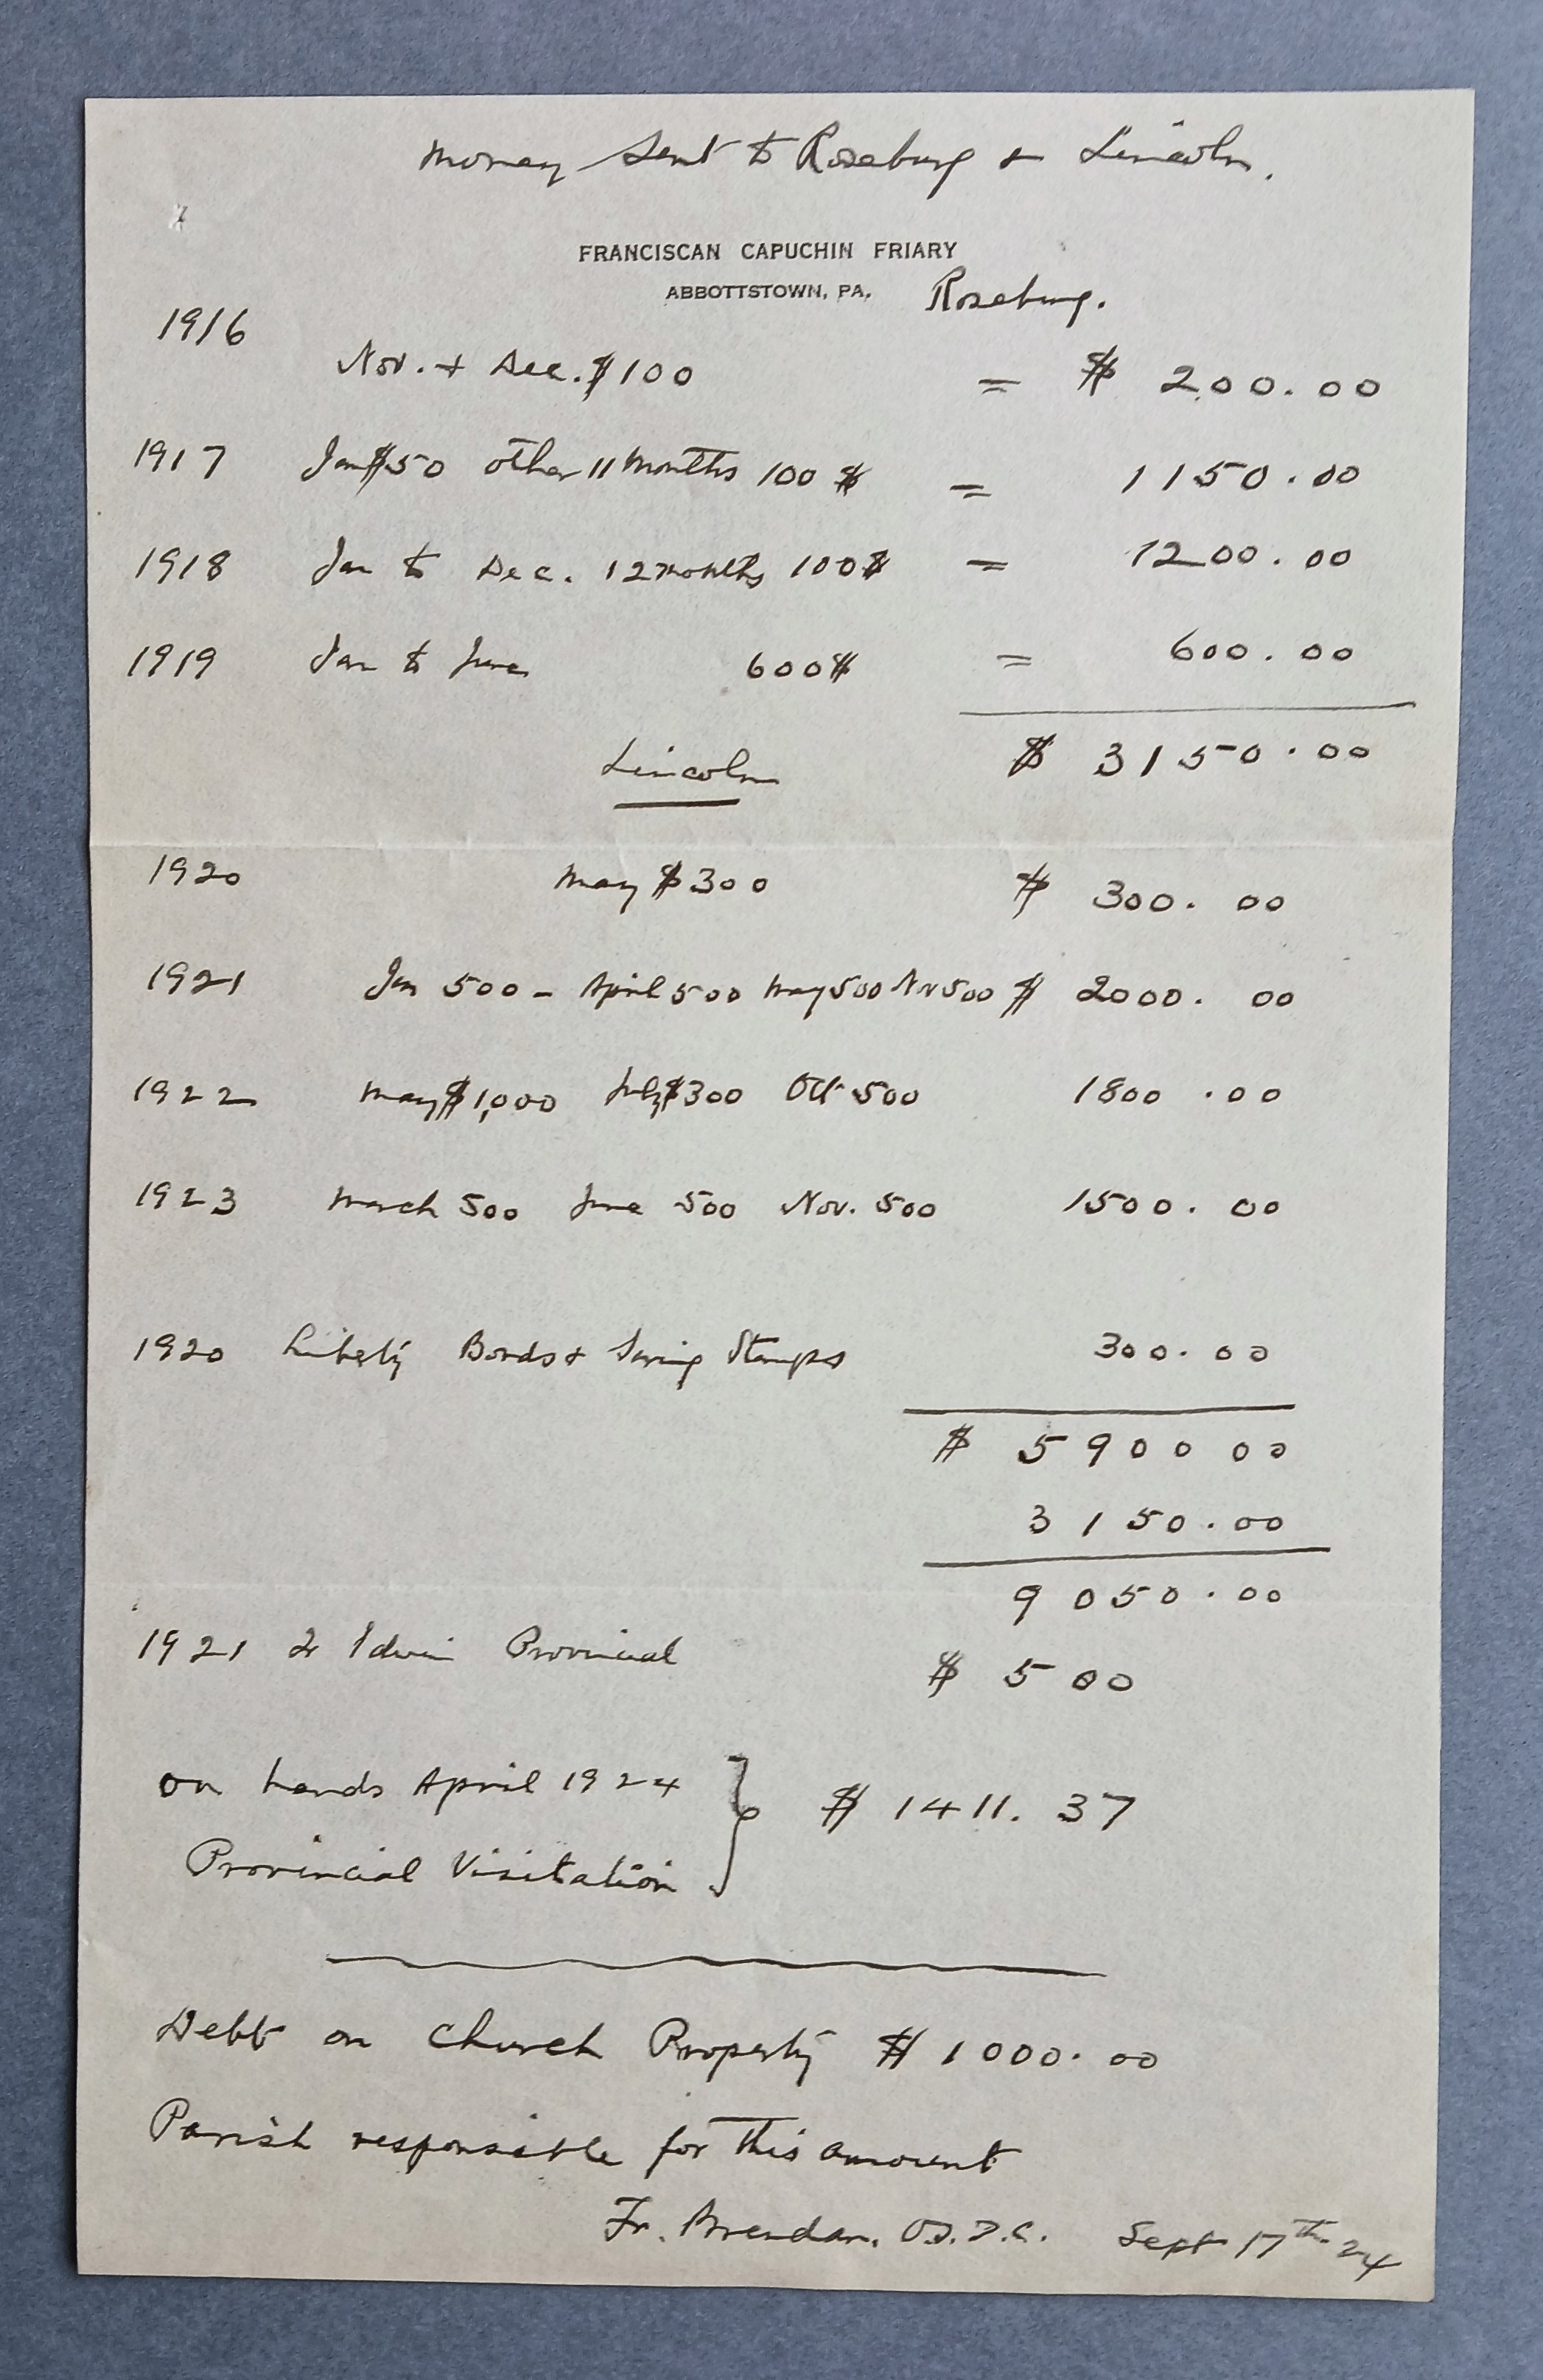 Money sent to Roseburg & Lincoln.
FRANCISCAN CAPUCHIN FRIARY
ABBOTTSTOWN, PA.
Roseburg.
1916
Nov. + Dec. $100 = $ 200.00
1917 Jan $50 other 11 months 100 $ = 1150.00
1918 Jan to Dec. 12 months 100$ = 1200.00
1919 Jan to June 600$ = 600.00
$ 3150.00
Lincoln
1920 May $300 $ 300.00
1921 Jan 500 - April 500 May 500 Nov 500 $ 2000.00
1922 May $1,000 July $300 Oct 500 1800.00
1923 March 500 June 500 Nov. 500 1500.00
1920 Liberty Bonds & Saving Stamps 300.00
$ 5900 00
3150.00
9050.00
1921 Fr Edwin Provincial $ 500
on hands April 1924
Provincial Visitation } $ 1411.37
Debt on Church Property $ 1000.00
Parish responsible for this amount
Fr. Brendan. Sept 17th 24